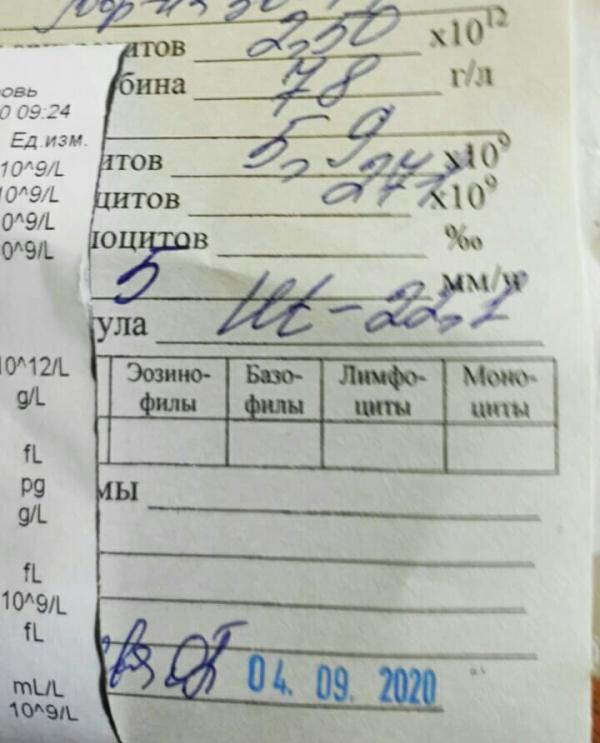 итов 2,50 х10^12
бина 78 г/л
5,9
итов х10^9
цитов 277 х10^9
оцитов ‰
5 мм/ч
ула Ht - 22,1
Эозино- Базо- Лимфо- Моно-
филы филы циты циты
мы
04. 09. 2020
овь
0 09:24
Ед.изм.
10^9/L
10^9/L
0^9/L
0^9/L
10^12/L
g/L
fL
pg
g/L
fL
10^9/L
fL
mL/L
10^9/L